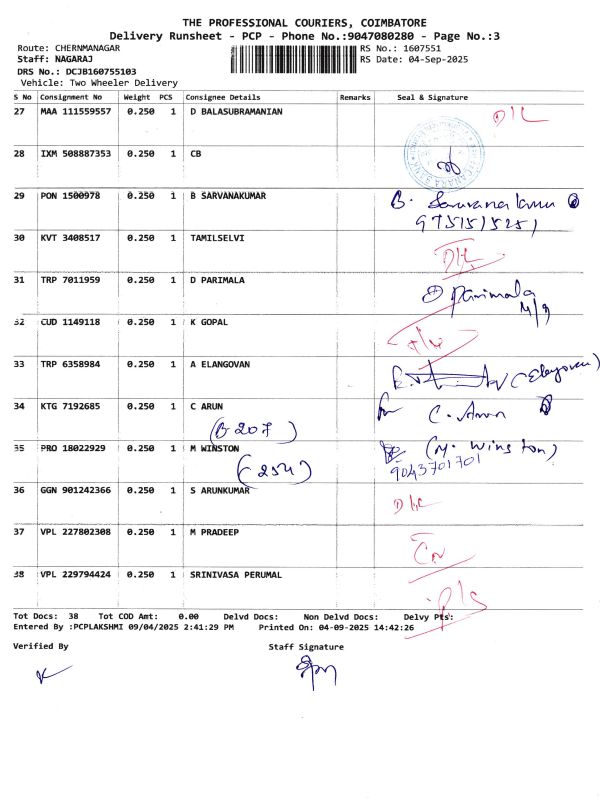 THE PROFESSIONAL COURIERS, COIMBATORE
Delivery Runsheet - PCP - Phone No.:9047080280 - Page No.:3
Route: CHERNMANAGAR RS No.: 1607551
Staff: NAGARAJ RS Date: 04-Sep-2025
DRS No.: DCJB160755103
Vehicle: Two Wheeler Delivery
S No Consignment No Weight PCS Consignee Details Remarks Seal & Signature
27 MAA 111559557 0.250 1 D BALASUBRAMANIAN D/L
28 IXM 508887353 0.250 1 CB
CANARA BANK
29 PON 1500978 0.250 1 B SARVANAKUMAR B. Saravanakumar
9751515251
30 KVT 3408517 0.250 1 TAMILSELVI D/L
31 TRP 7011959 0.250 1 D PARIMALA D Parimala
32 CUD 1149118 0.250 1 K GOPAL
33 TRP 6358984 0.250 1 A ELANGOVAN (Elangovan)
34 KTG 7192685 0.250 1 C ARUN C. Arun
(B 207)
35 PRO 18022929 0.250 1 M WINSTON (M. Winston)
(254) 9043701701
36 GGN 901242366 0.250 1 S ARUNKUMAR D/L
37 VPL 227802308 0.250 1 M PRADEEP
38 VPL 229794424 0.250 1 SRINIVASA PERUMAL
Tot Docs: 38 Tot COD Amt: 0.00 Delvd Docs: Non Delvd Docs: Delvy Pts:
Entered By :PCPLAKSHMI 09/04/2025 2:41:29 PM Printed On: 04-09-2025 14:42:26
Verified By Staff Signature